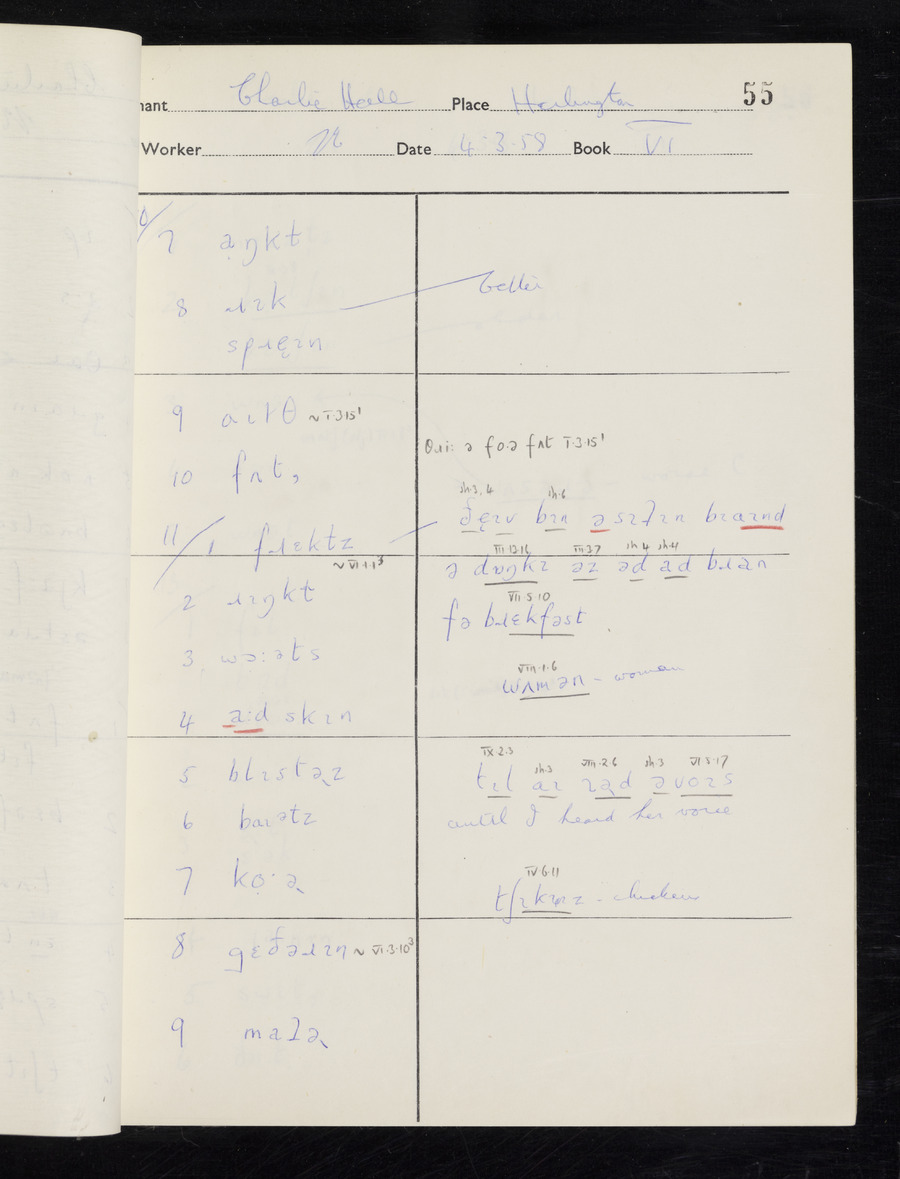 nant Charlie Place Harlington 55
Worker Date 4·3·58 Book VI
7 aŋkt
8 ɹɪk better
spɹęɪn
9 aɩtθ ~ I·3·15¹
θɹi: ə fo·ə fʌt I·3·15¹
10 fʌt,
sh.3,4 sh.6
ðęɪv bɪn ə sɪtɪn bɪaɪnd
11/1 fɹɛktz ~ VI·1·1³
VII·13·16 VII·3·7 sh.4 sh.4
ə dɒŋkɪ əz əd ad bɹan
2 ɹɪŋkt
VII·5·10
fə bɹɛkfəst
3 wɔ:əts
VIII·1·6
wʌmən - woman
4 a:d skɪn
IX·2·3 sh.3 VIII·2·6 sh.3 VI·5·17
5 blɪstəz
tɪl aɪ əd ə vɔɪs
6 baɪətz until I heard her voice
7 kọ·ə
IV·6·11
tʃɪkɪnz - chickens
8 gɛðəɹɪn ~ VI·3·10³
9 matə